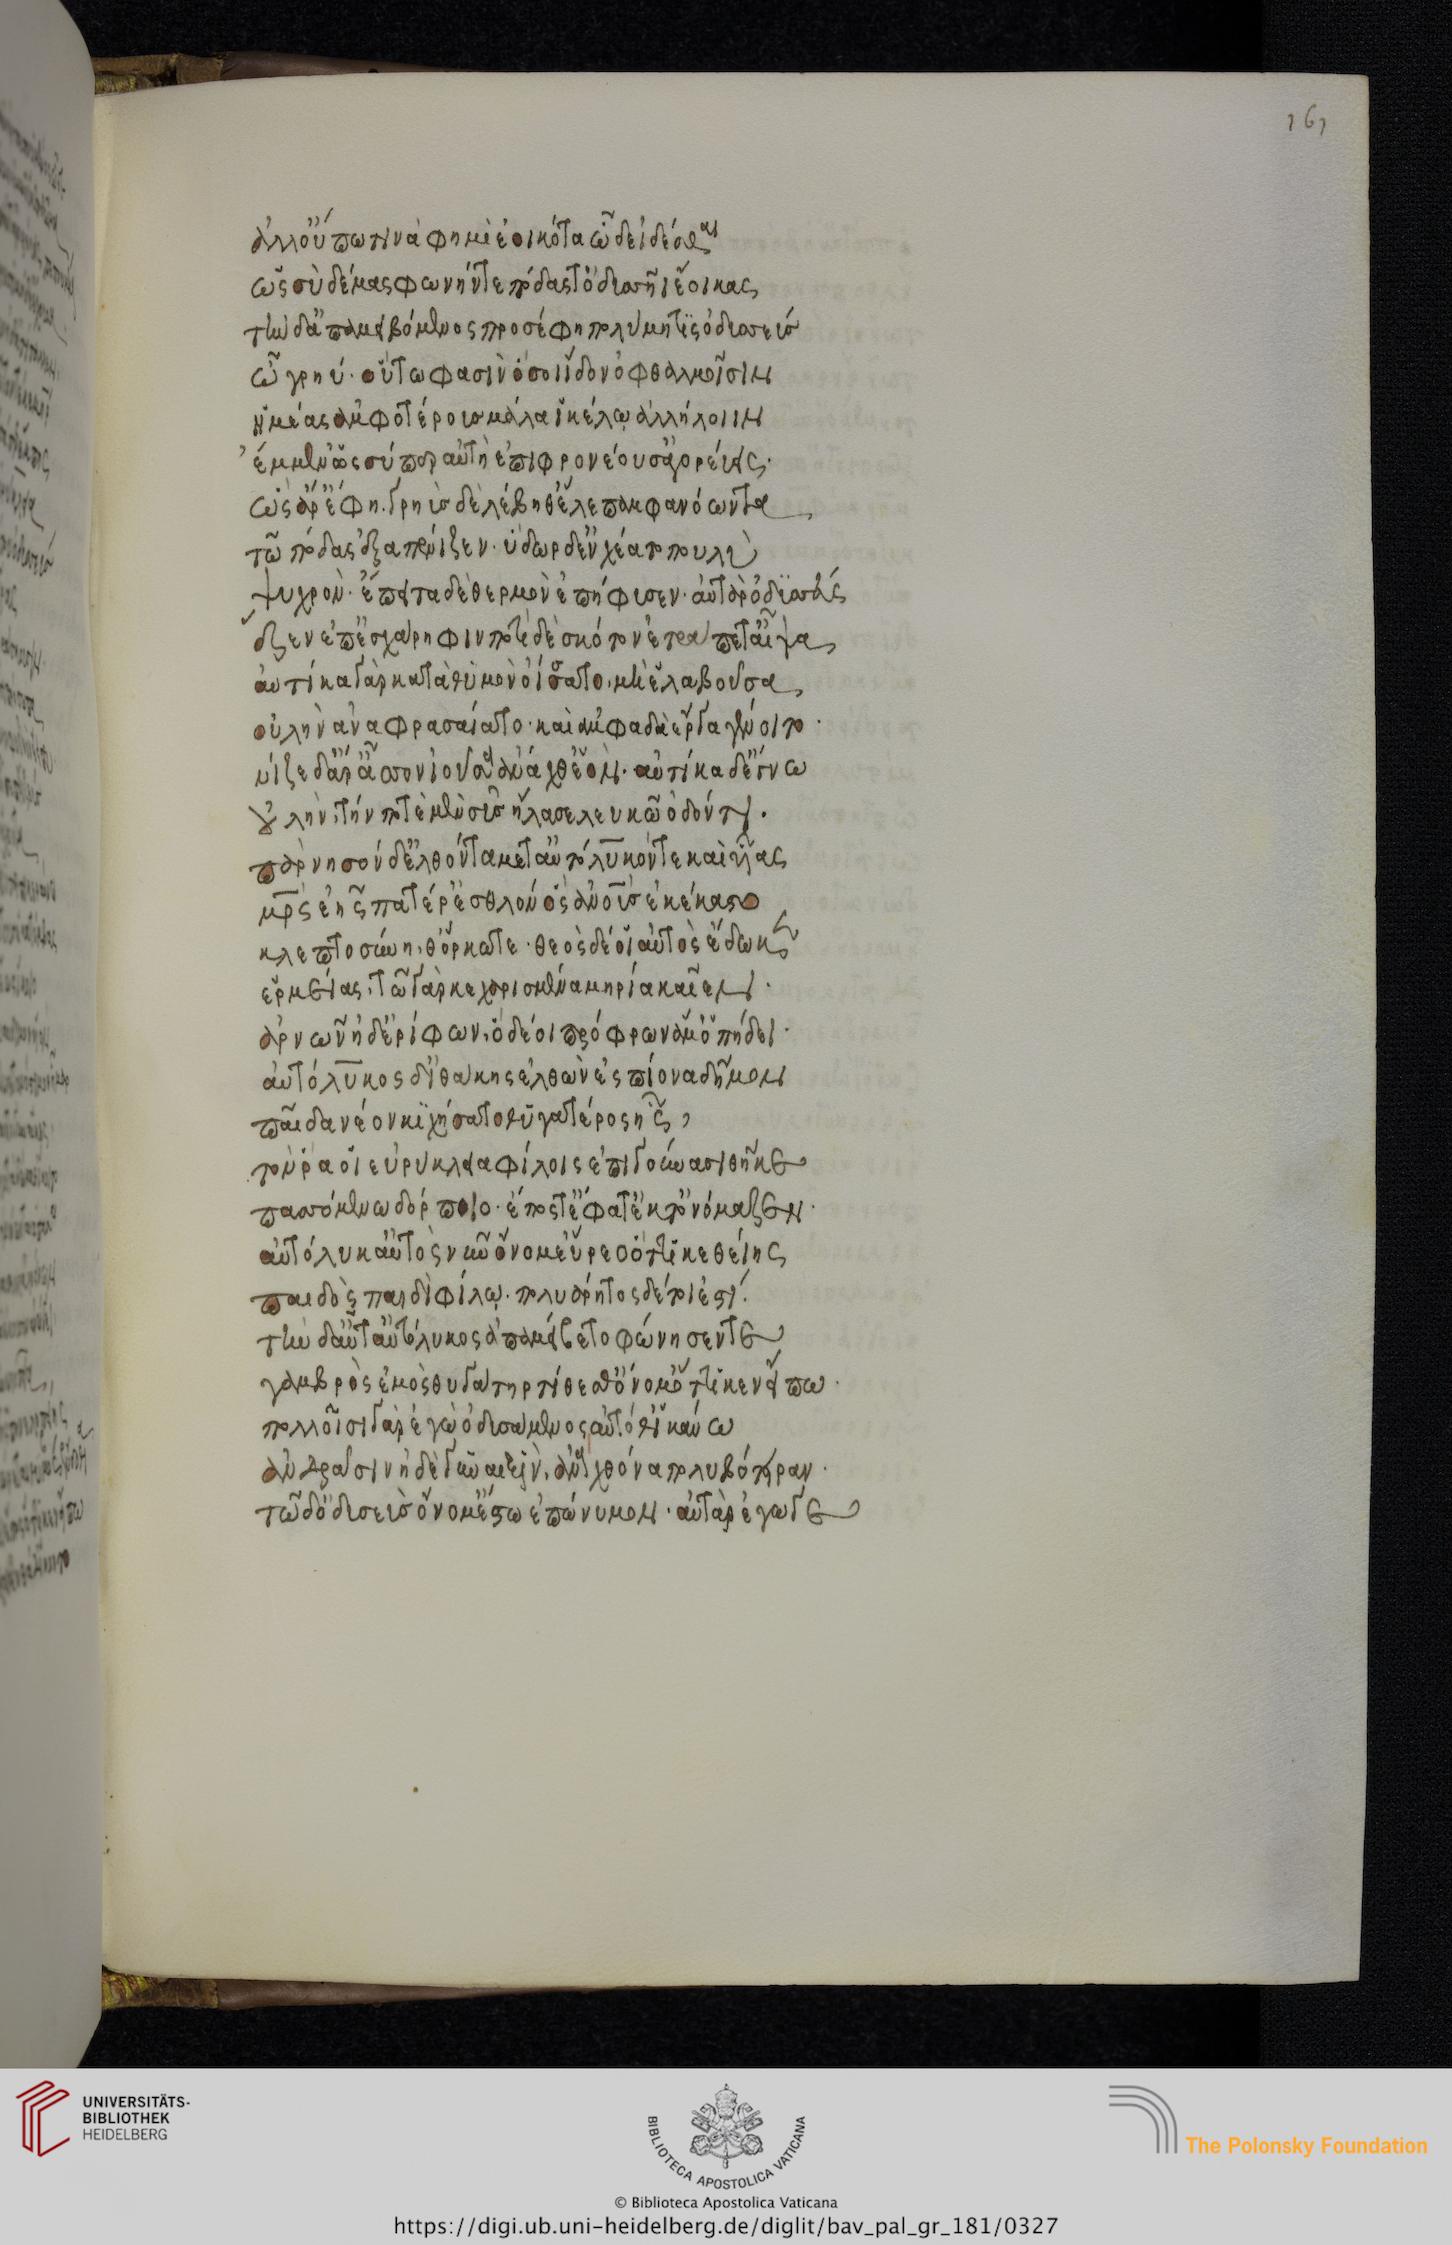 ἀλλ' οὔπω τινά φημι ἐοικότα ὧδε ἰδέσθαι
ὡς σὺ δέμας φωνήν τε πόδας τ' ὀδυσῆι ἔοικας
τὴν δ' ἀπαμειβόμενος προσέφη πολύμητις ὀδυσσεύς
ὦ γρηύ· οὕτω φασὶν ὅσοι ἴδον ὀφθαλμοῖσιν
ἡμέας ἀμφοτέρους μάλα ἰκέλω ἀλλήλοιιν
ἔμμεναι ὡς σύ περ αὐτὴ ἐπιφρονέουσ' ἀγορεύεις·
ὣς ἄρ' ἔφη. γρηὺς δὲ λέβηθ' ἕλε παμφανόωντα
τῶ πόδας ἐξαπένιζεν· ὕδωρ δ' ἐνχέατο πουλὺ
ψυχρὸν· ἔπειτα δὲ θερμὸν ἐπήφυσεν· αὐτὰρ ὀδυσσεύς
ἷζεν ἐπ' ἐσχαρηφιν ποτὶ δὲ σκότον ἐτράπετ' αἶψα
αὐτίκα γὰρ κατὰ θυμὸν ὀίσατο, μὴ ἑ λαβοῦσα
οὐλὴν ἀναφρασαίατο· καὶ ἀμφαδὰ ἔργα γένοιτο·
νίζε δ' ἄρ' ἆσσον ἰοῦσα ἄναχθ' ἑόν· αὐτίκα δ' ἔγνω
οὐλὴν, τήν ποτέ μιν σῦς ἤλασε λευκῶ ὀδόντι.
παρνησόνδ' ἐλθόντα μετ' αὐτόλυκόν τε καὶ υἷας
μρς ἑῆς πατέρ' ἐσθλὸν ὃς ἀνους ἐκέκαστο
κλεπτοσύνη, θ' ὅρκω τε· θεὸς δέ οἱ αὐτὸς ἔδωκεν
ἑρμείας, τῶ γὰρ κεχαρισμένα μηρία καῖεν·
ἀρνῶν ἠδ' ἐρίφων, ὁ δέ οἱ πρόφρων ἅμ' ὀπήδει·
αὐτόλυκος δ' ἰθάκης ἐλθὼν ἐς πίονα δῆμον
παῖδα νέον κιχήσατο θυγατέρος ἧς,
τόν ῥά οἱ εὐρύκλεια φίλοις ἐπὶ γούνασι θῆκε
παυσομένω δόρποιο· ἔπος τ' ἔφατ' ἔκ τ' ὀνόμαζεν·
αὐτόλυκ' αὐτὸς νῦν ὄνομ' εὕρεο ὅττι κε θείης
παιδὸς παιδὶ φίλῳ· πολυάρητος δέ τοί ἐστί.
τὴν δ' αὖτ' αὐτόλυκος ἀπαμείβετο φώνησέν τε
γαμβρὸς ἐμὸς θυγάτηρ τίθεσθ' ὄνομ' ὅττι κεν εἴπω·
πολλοῖσι γὰρ ἐγὼ ὀδυσάμενος αὐτόθ' ἱκάνω
ἀνδράσιν ἠδὲ γυναιξὶν, ἀνὰ χθόνα πολυβότειραν·
τῶ δ' ὀδυσεὺς ὄνομ' ἔστω ἐπώνυμον· αὐτὰρ ἐγώ γε
161
UNIVERSITÄTS-
BIBLIOTHEK
HEIDELBERG
BIBLIOTECA APOSTOLICA VATICANA
The Polonsky Foundation
© Biblioteca Apostolica Vaticana
https://digi.ub.uni-heidelberg.de/diglit/bav_pal_gr_181/0327